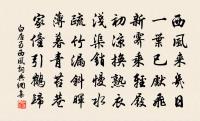 西風來幾日
一葉已飛
新霽乘輕屐
初涼換熟衣
淺渠銷慢水
疏竹漏斜暉
薄暮青苔巷
家僮引鶴歸
白居易西風詩